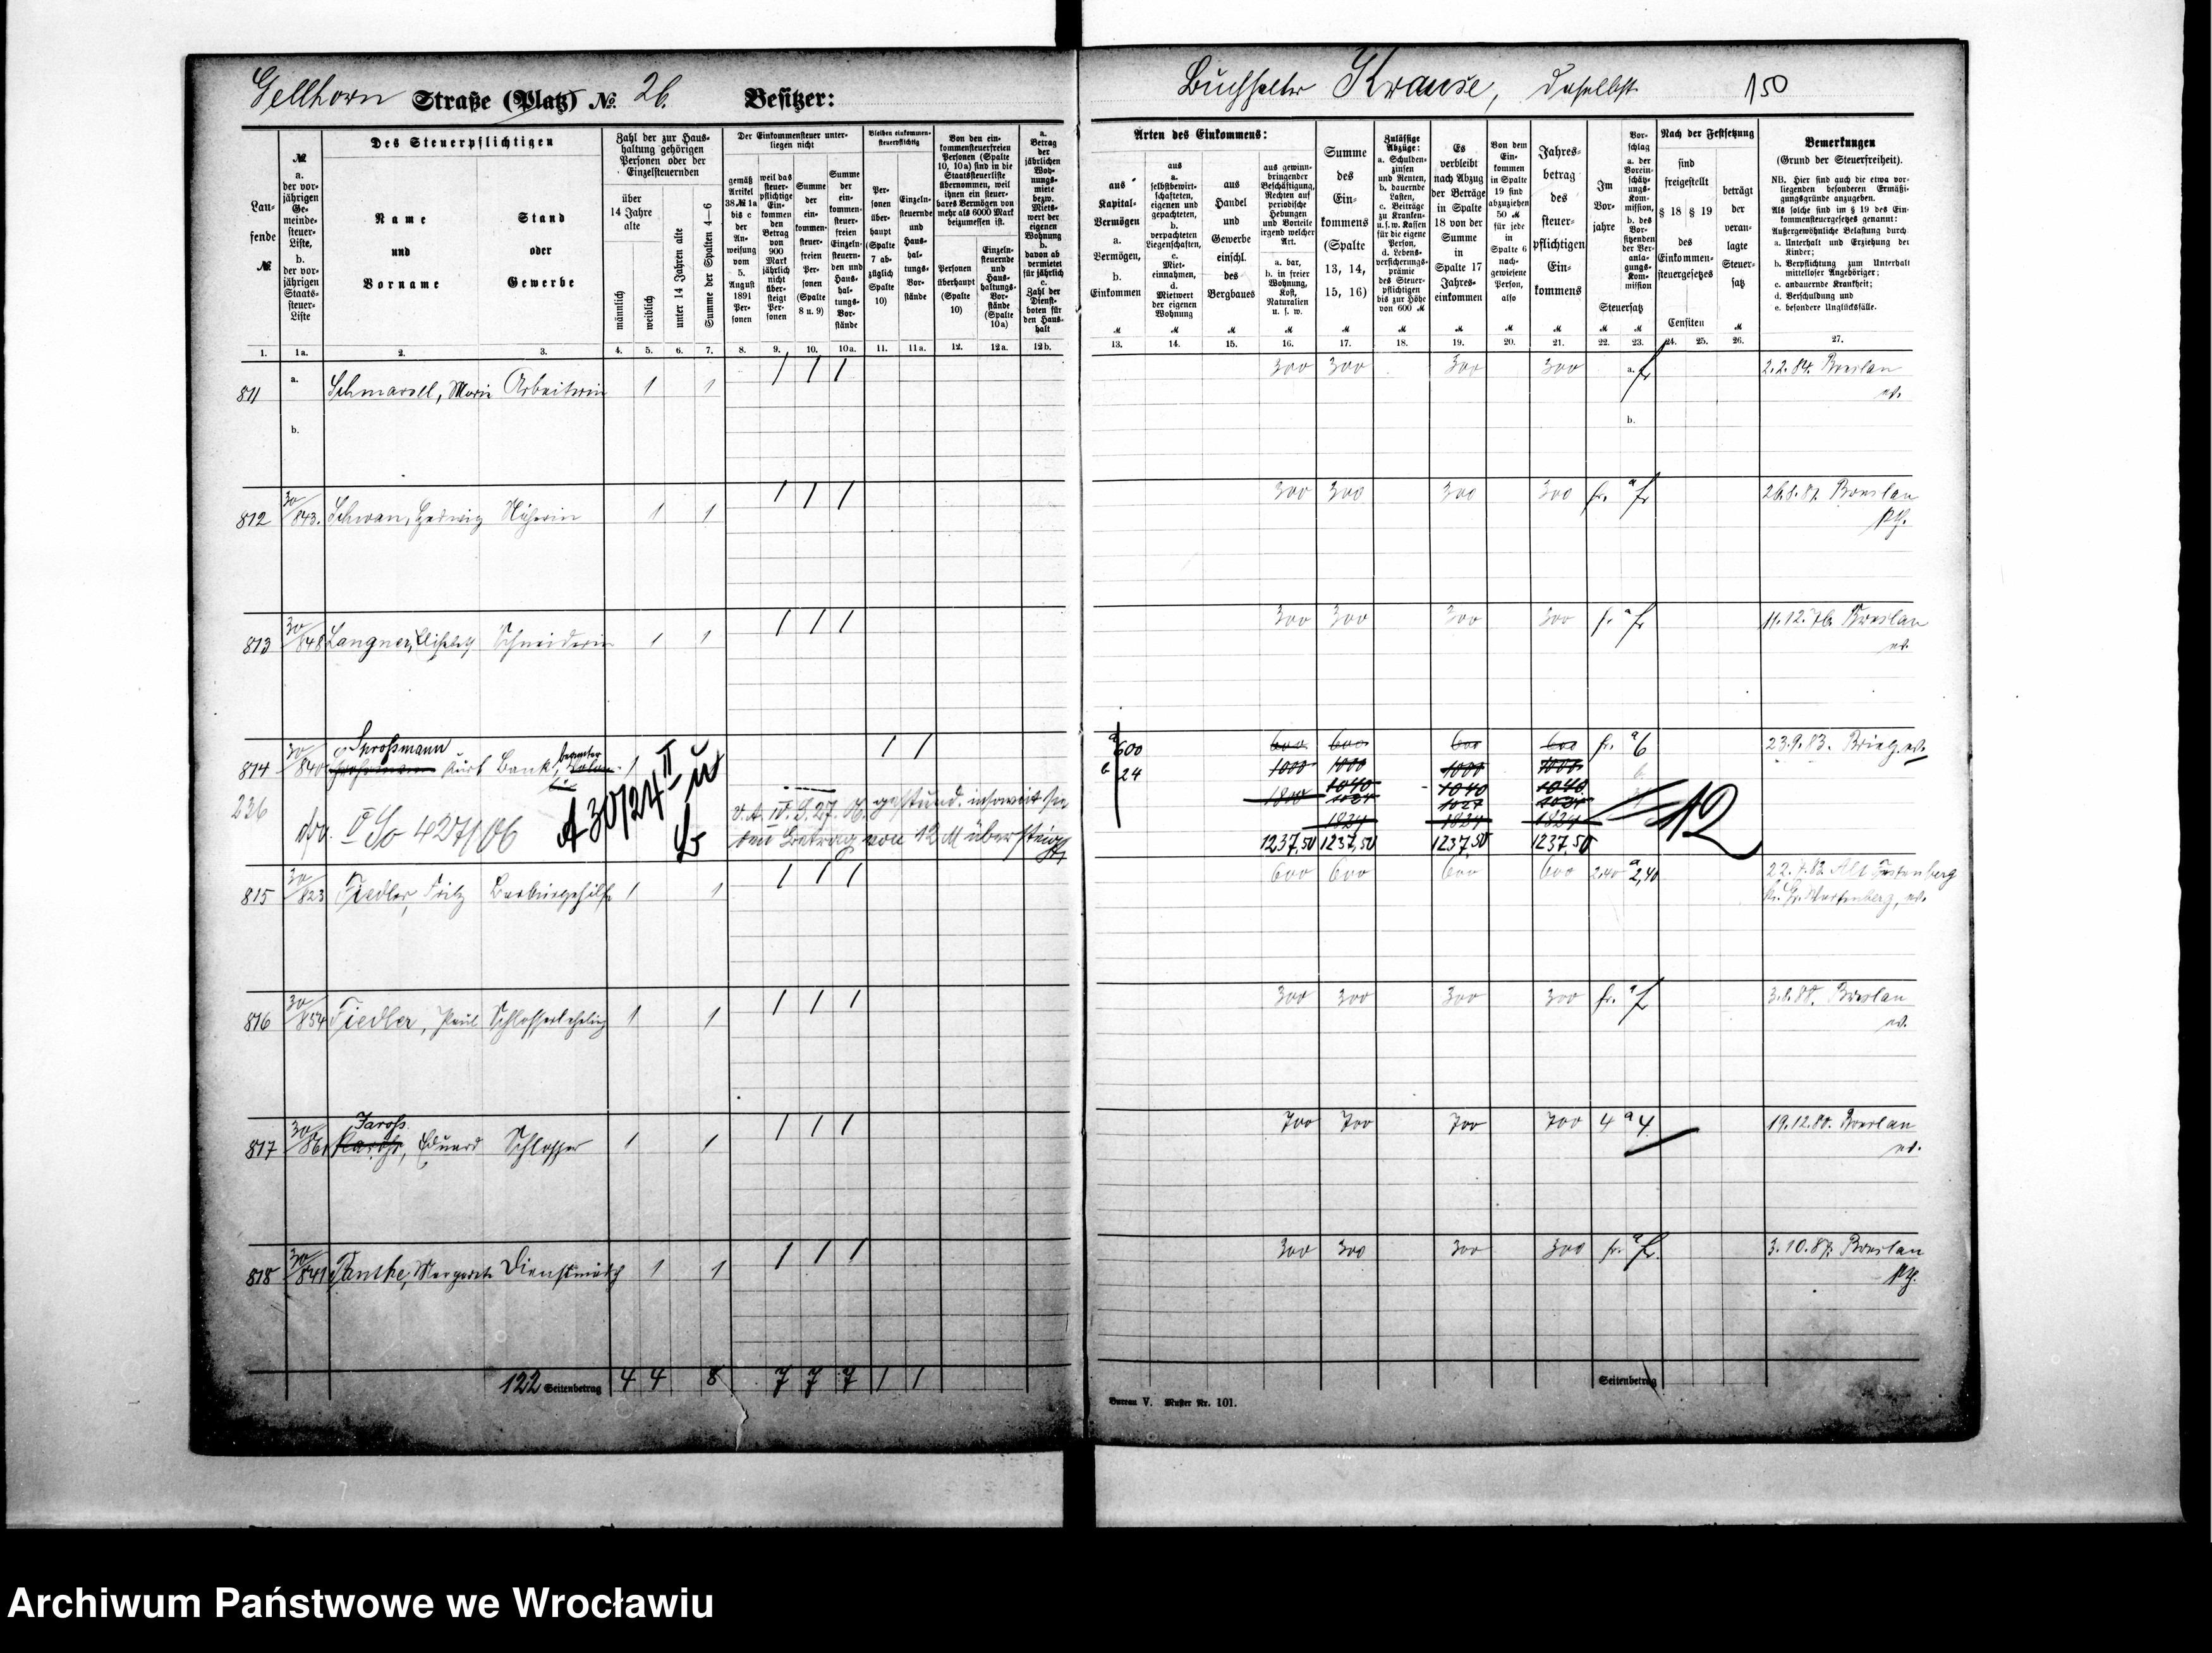 Gellhorn Straße (Platz) № 26. Besitzer:
Buchhalter Krause, daselbst. 150
Laufende №
№ a. der vorjährigen Gemeindesteuer-Liste, b. der vorjährigen Staatssteuer-Liste
Des Steuerpflichtigen
Name und Vorname
Stand oder Gewerbe
Zahl der zur Haushaltung gehörigen Personen oder der Einzelsteuernden
über 14 Jahre alte
männlich
weiblich
unter 14 Jahren alte
Summe der Spalten 4—6
Der Einkommensteuer unterliegen nicht
gemäß Artikel 38 № 1a bis c der Anweisung vom 5. August 1891 Personen
weil das steuerpflichtige Einkommen den Betrag von 900 Mark jährlich nicht übersteigt Personen
Summe der einkommensteuerfreien Personen (Spalte 8 u. 9)
Summe der einkommensteuerfreien Einzelnsteuernden und Haushaltungs-Vorstände
Bleiben einkommensteuerpflichtig
Personen überhaupt (Spalte 7 abzüglich Spalte 10)
Einzelnsteuernde und Haushaltungs-Vorstände
Von den einkommensteuerfreien Personen (Spalte 10, 10a) sind in die Staatssteuerliste übernommen, weil ihnen ein steuerbares Vermögen von mehr als 6000 Mark beizumessen ist.
Personen überhaupt (Spalte 10)
Einzelnsteuernde und Haushaltungs-Vorstände (Spalte 10a)
a. Betrag der jährlichen Wohnungsmiete bezw. Mietswert der eigenen Wohnung b. davon ab vermietet für jährlich c. Zahl der Dienstboten für den Haushalt
1. 1a. 2. 3. 4. 5. 6. 7. 8. 9. 10. 10a. 11. 11a. 12. 12a. 12b.
Arten des Einkommens:
aus Kapital-Vermögen a. Vermögen, b. Einkommen
aus a. selbstbewirtschafteten, eigenen und gepachteten, b. verpachteten Liegenschaften, c. Mieteinnahmen, d. Mietwert der eigenen Wohnung
aus Handel und Gewerbe einschl. des Bergbaues
aus gewinnbringender Beschäftigung, Rechten auf periodische Hebungen und Vorteile irgend welcher Art. a. bar, b. in freier Wohnung, Kost, Naturalien u. s. w.
Summe des Einkommens (Spalte 13, 14, 15, 16)
Zulässige Abzüge: a. Schuldenzinsen und Renten, b. dauernde Lasten, c. Beiträge zu Kranken- u. s. w. Kassen für die eigene Person, d. Lebensversicherungsprämie des Steuerpflichtigen bis zur Höhe von 600 M
Es verbleibt nach Abzug der Beträge in Spalte 18 von der Summe in Spalte 17 Jahreseinkommen
Von dem Einkommen in Spalte 19 sind abzuziehen 50 M für jede in Spalte 6 nachgewiesene Person, also
Jahresbetrag des steuerpflichtigen Einkommens
Im Vorjahre
Vorschlag a. der Voreinschätzungs-Kommission, b. des Vorsitzenden der Veranlagungs-Kommission
Steuersatz
Nach der Festsetzung
sind freigestellt § 18 § 19 des Einkommensteuergesetzes
Censiten
beträgt der veranlagte Steuersatz
Bemerkungen
(Grund der Steuerfreiheit).
NB. Hier sind auch die etwa vorliegenden besonderen Ermäßigungsgründe anzugeben.
Als solche sind im § 19 des Einkommensteuergesetzes genannt:
Außergewöhnliche Belastung durch
a. Unterhalt und Erziehung der Kinder;
b. Verpflichtung zum Unterhalt mittelloser Angehöriger;
c. andauernde Krankheit;
d. Verschuldung und
e. besondere Unglücksfälle.
13. 14. 15. 16. 17. 18. 19. 20. 21. 22. 23. 24. 25. 26. 27.
811 a. Schmarsel, Marie Arbeiterin 1 1 1 1 1 300 300 300 300 a. fr 2.2.84. Breslau
ev.
b. b.
812 30/843. Schwan, Hedwig Näherin 1 1 1 1 1 300 300 300 300 fr. a fr 26.8.87. Breslau
kth.
813 30/848 Langner, Elisabeth Schneiderin 1 1 1 1 1 300 300 300 300 fr. a fr 11.12.76. Breslau
ev.
Sprossmann beamter
814 30/840 Kurt Bank 1 1 1 a 600 600 600 600 600 fr. a 6 23.9.83. Brieg. ev.
b 24 1000 1000 1000 1000
1040 1040 1040
236 1800 1024 1024 1024
1824 1824 1824
So 427/06 A 30/24 II 12
den Betrag von 12 M übersteigt
1237,50 1237,50 1237,50 1237,50
815 30/823 Tiedler, Fritz Barbiergehilfe 1 1 1 1 1 600 600 600 600 2,40 a 2,40 22.7.82. Alt Festenberg
Kr. Gr. Wartenberg, ev.
816 30/854 Tiedler, Paul Schlosserlehrling 1 1 1 1 1 300 300 300 300 fr. a fr 3.8.88. Breslau
ev.
Jaross
817 30/861 Eduard Schlosser 1 1 1 1 1 700 700 700 700 4 a 4 19.12.80. Breslau
ev.
818 30/841 Pantke, Margarete Dienstmädch 1 1 1 1 1 300 300 300 300 fr. a fr. 3.10.87. Breslau
kth.
122 Seitenbetrag 4 4 8 7 7 7 1 1
Seitenbetrag
Bureau V. Muster Nr. 101.
Archiwum Państwowe we Wrocławiu